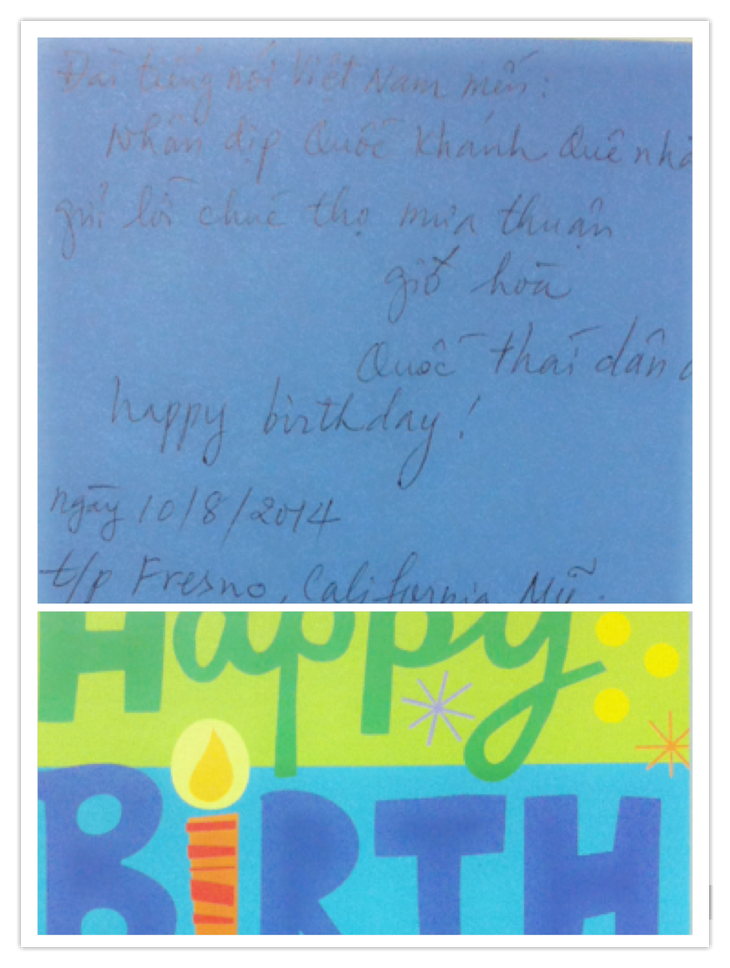 Đài tiếng nói Việt Nam mến:
Nhân dịp Quốc Khánh Quê nhà
gửi lời chúc thọ mưa thuận
gió hòa
Quốc thái dân
happy birthday!
ngày 10/8/2014
t/p Fresno, California, Mỹ.
Happy
BIRTH